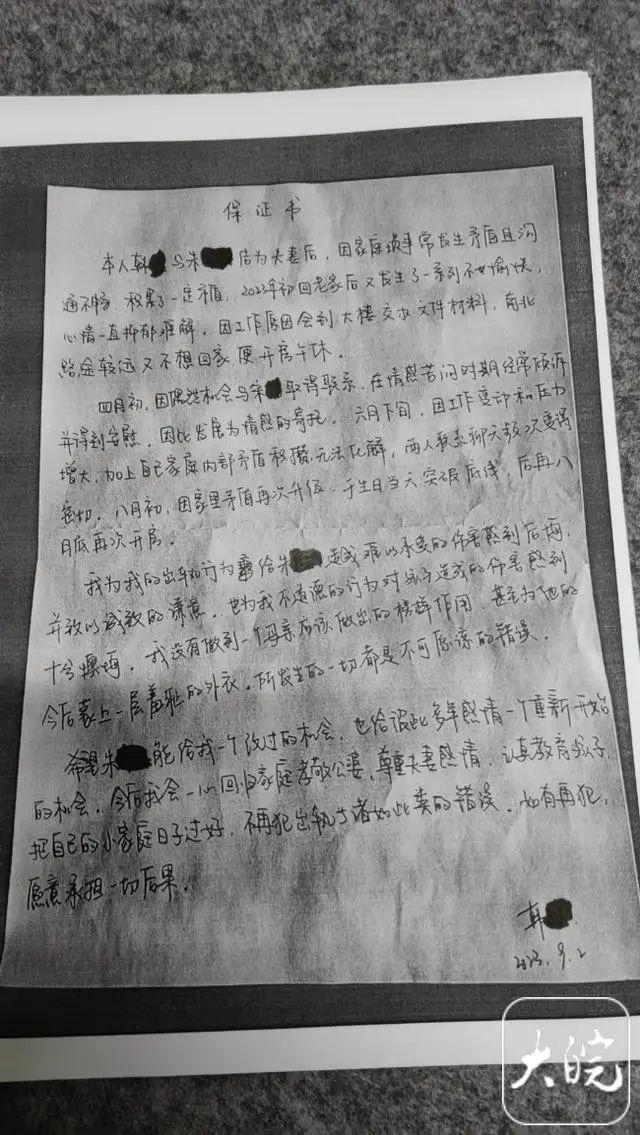 保证书
本人韩 与朱 结为夫妻后，因家庭琐事常发生矛盾且沟
通不畅，积累了一定矛盾，2023年初回老家后又发生了一系列不愉快，
心情一直抑郁难解，因工作原因会到大楼交办文件材料，南北
路途较远又不想回家便开房午休。
四月初，因偶然机会与 取得联系，在情感苦闷时期经常倾诉
并得到安慰，因此发展为情感的寄托。六月下旬，因工作变动和压力
增大，加上自己家庭内部矛盾积攒无法化解，两人联系聊天数次变得
密切，八月初，因家里矛盾再次升级，于生日当天突破底线，后再八
月底再次开房。
我为我的出轨行为 给朱 造成难以承受的伤害感到后悔，
并致以诚挚的歉意，也为我不道德的行为对孩子造成的伤害感到
十分懊悔，我没有做到一个母亲应该做出的榜样作用，甚至为他的
今后蒙上一层羞耻的外衣，所发生的一切都是不可原谅的错误。
希望朱 能给我一个改过的机会，也给彼此多年感情一个重新开始
的机会，今后我会一心回归家庭孝敬公婆，尊重夫妻感情，认真教育孩子，
把自己的小家庭日子过好，不再犯出轨 诸如此类的错误，如有再犯，
愿意承担一切后果。
韩
2023.9.2
大皖